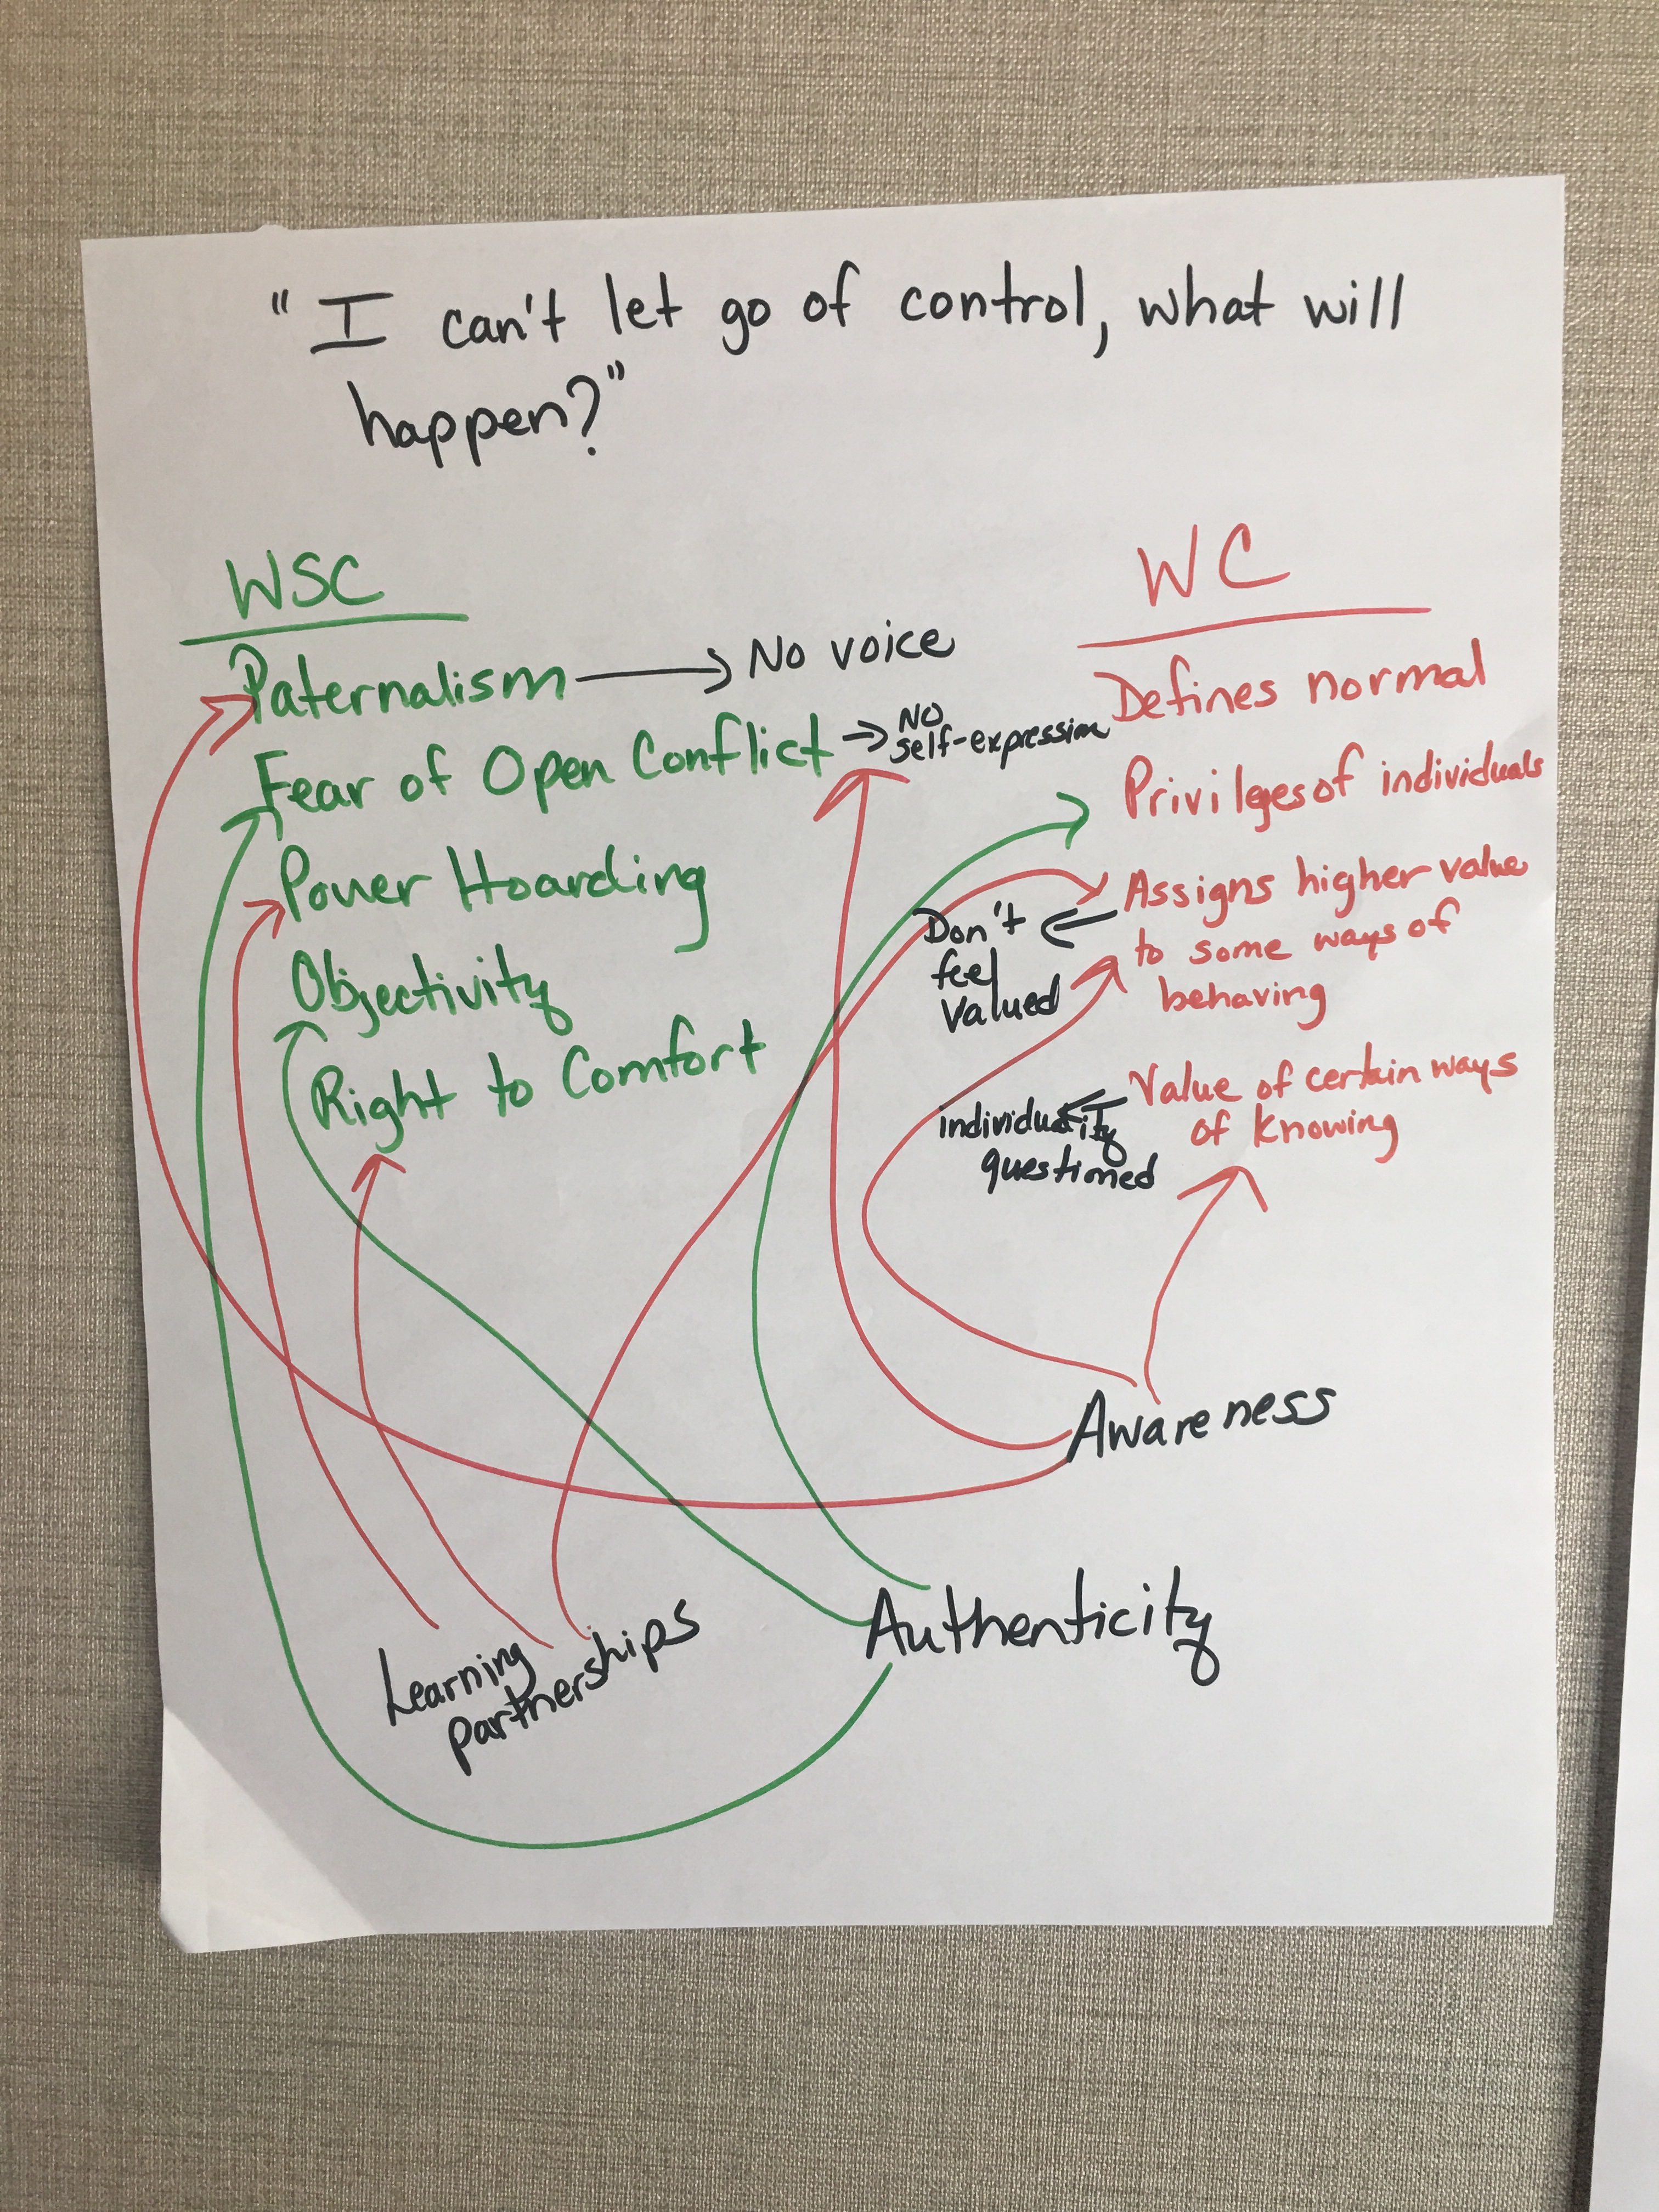 "I can't let go of control, what will
happen?"
WSC
Paternalism → No voice
Fear of Open Conflict → No
self-expression
Power Hoarding
Objectivity
Right to Comfort
WC
Defines normal
Privileges of individuals
Assigns higher value
to some ways of
behaving
Don't
feel
valued
Value of certain ways
of knowing
individuality
questioned
Awareness
Authenticity
Learning
partnerships